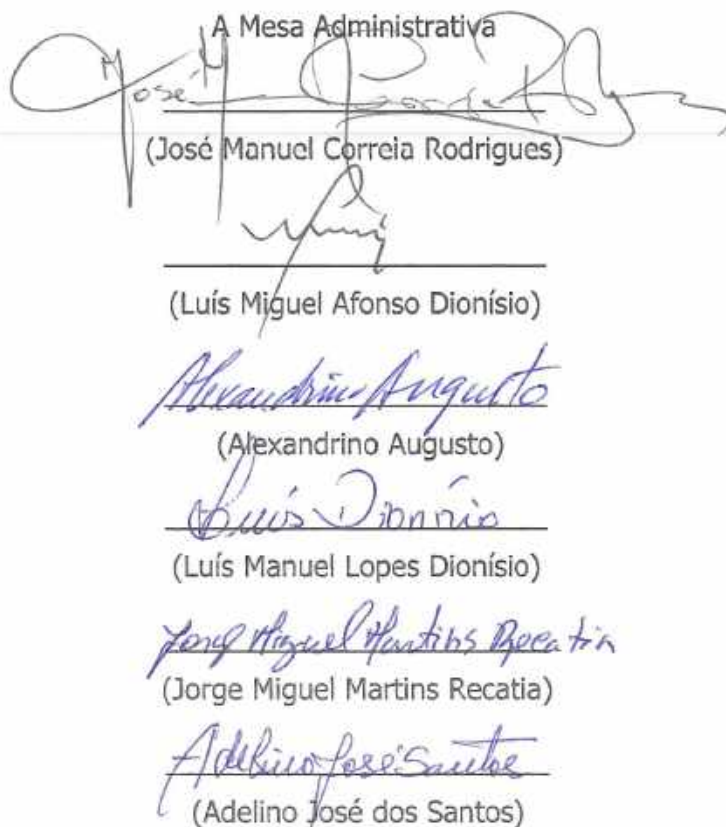 A Mesa Administrativa
José M Correia Rodrigues
(José Manuel Correia Rodrigues)
(Luís Miguel Afonso Dionísio)
Alexandrino Augusto
(Alexandrino Augusto)
Luís Dionísio
(Luís Manuel Lopes Dionísio)
Jorge Miguel Martins Recatia
(Jorge Miguel Martins Recatia)
Adelino José Santos
(Adelino José dos Santos)